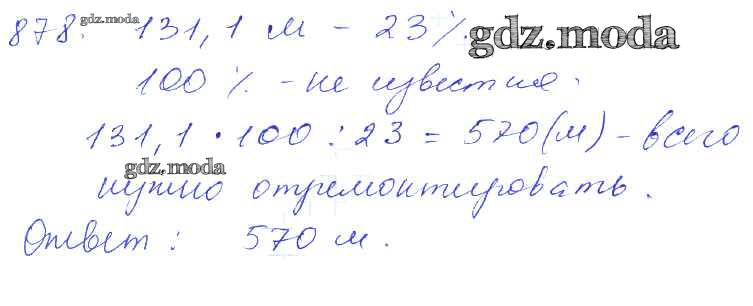 878. gdz.moda 131,1 м – 23%. gdz.moda
100 % – не известно.
131,1 • 100 : 23 = 570(м) – всего
gdz.moda
нужно отремонтировать.
Ответ: 570 м.